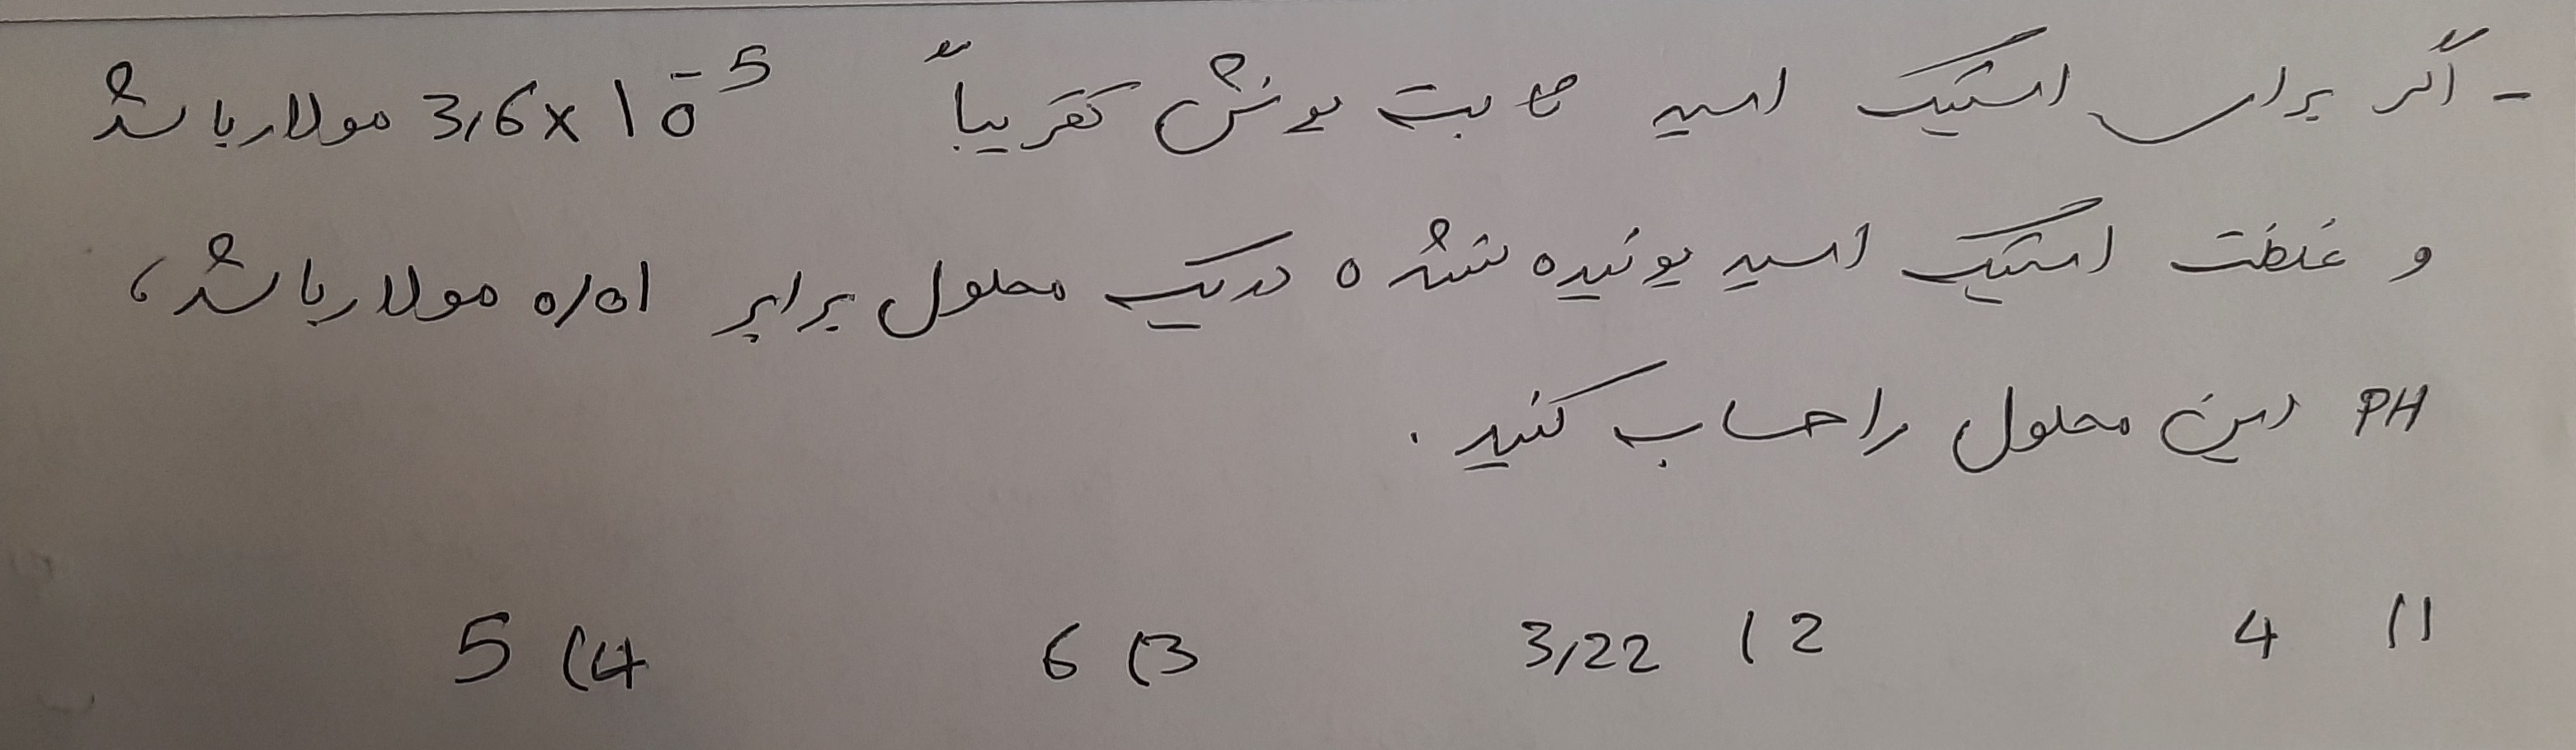 - اگر برای استیک اسید ثابت یونش تقریباً 3,6x10⁻⁵ مولار باشد
و غلظت استیک اسید یونیده نشده در یک محلول برابر ۰/۰۱ مولار باشد،
PH این محلول را حساب کنید.
1) 4 2) 3,22 3) 6 4) 5